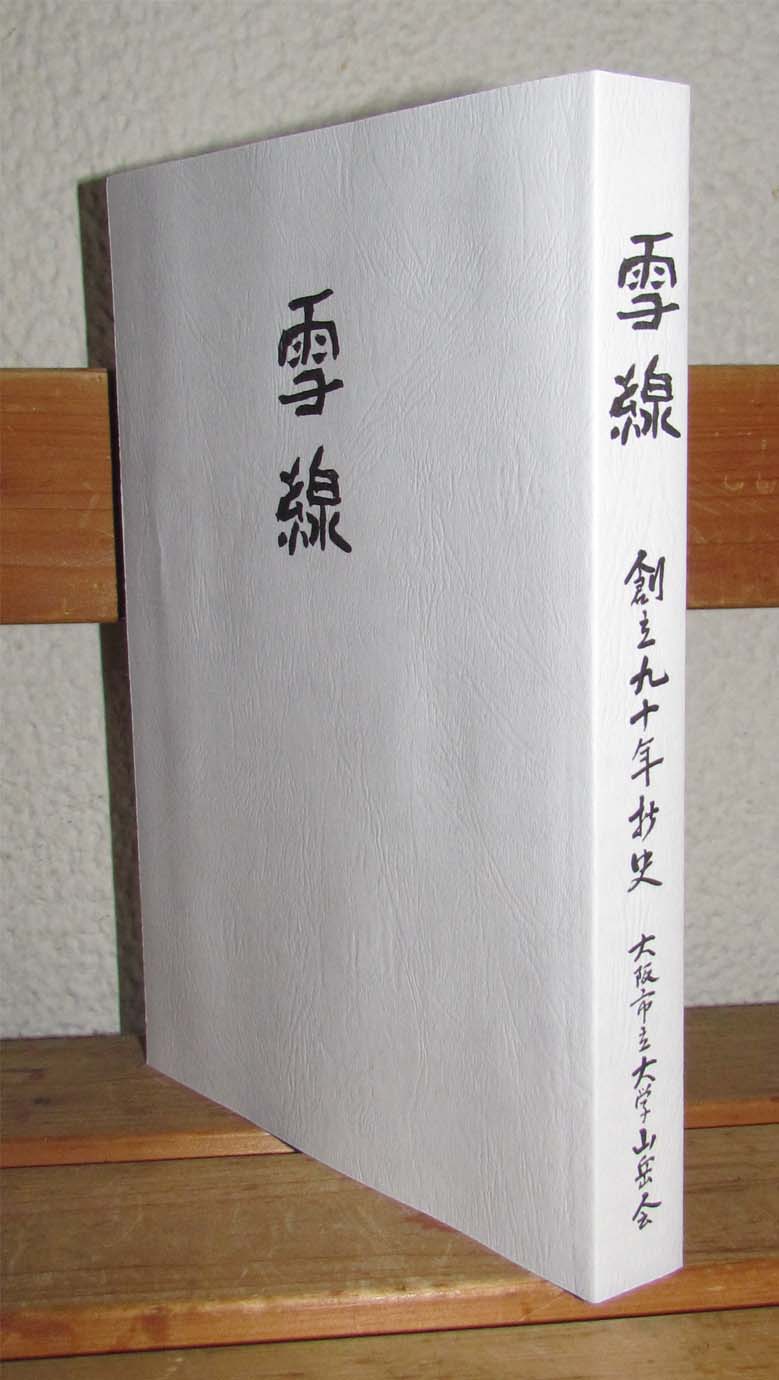 雪線
雪線
創立九十年抄史
大阪市立大学山岳会